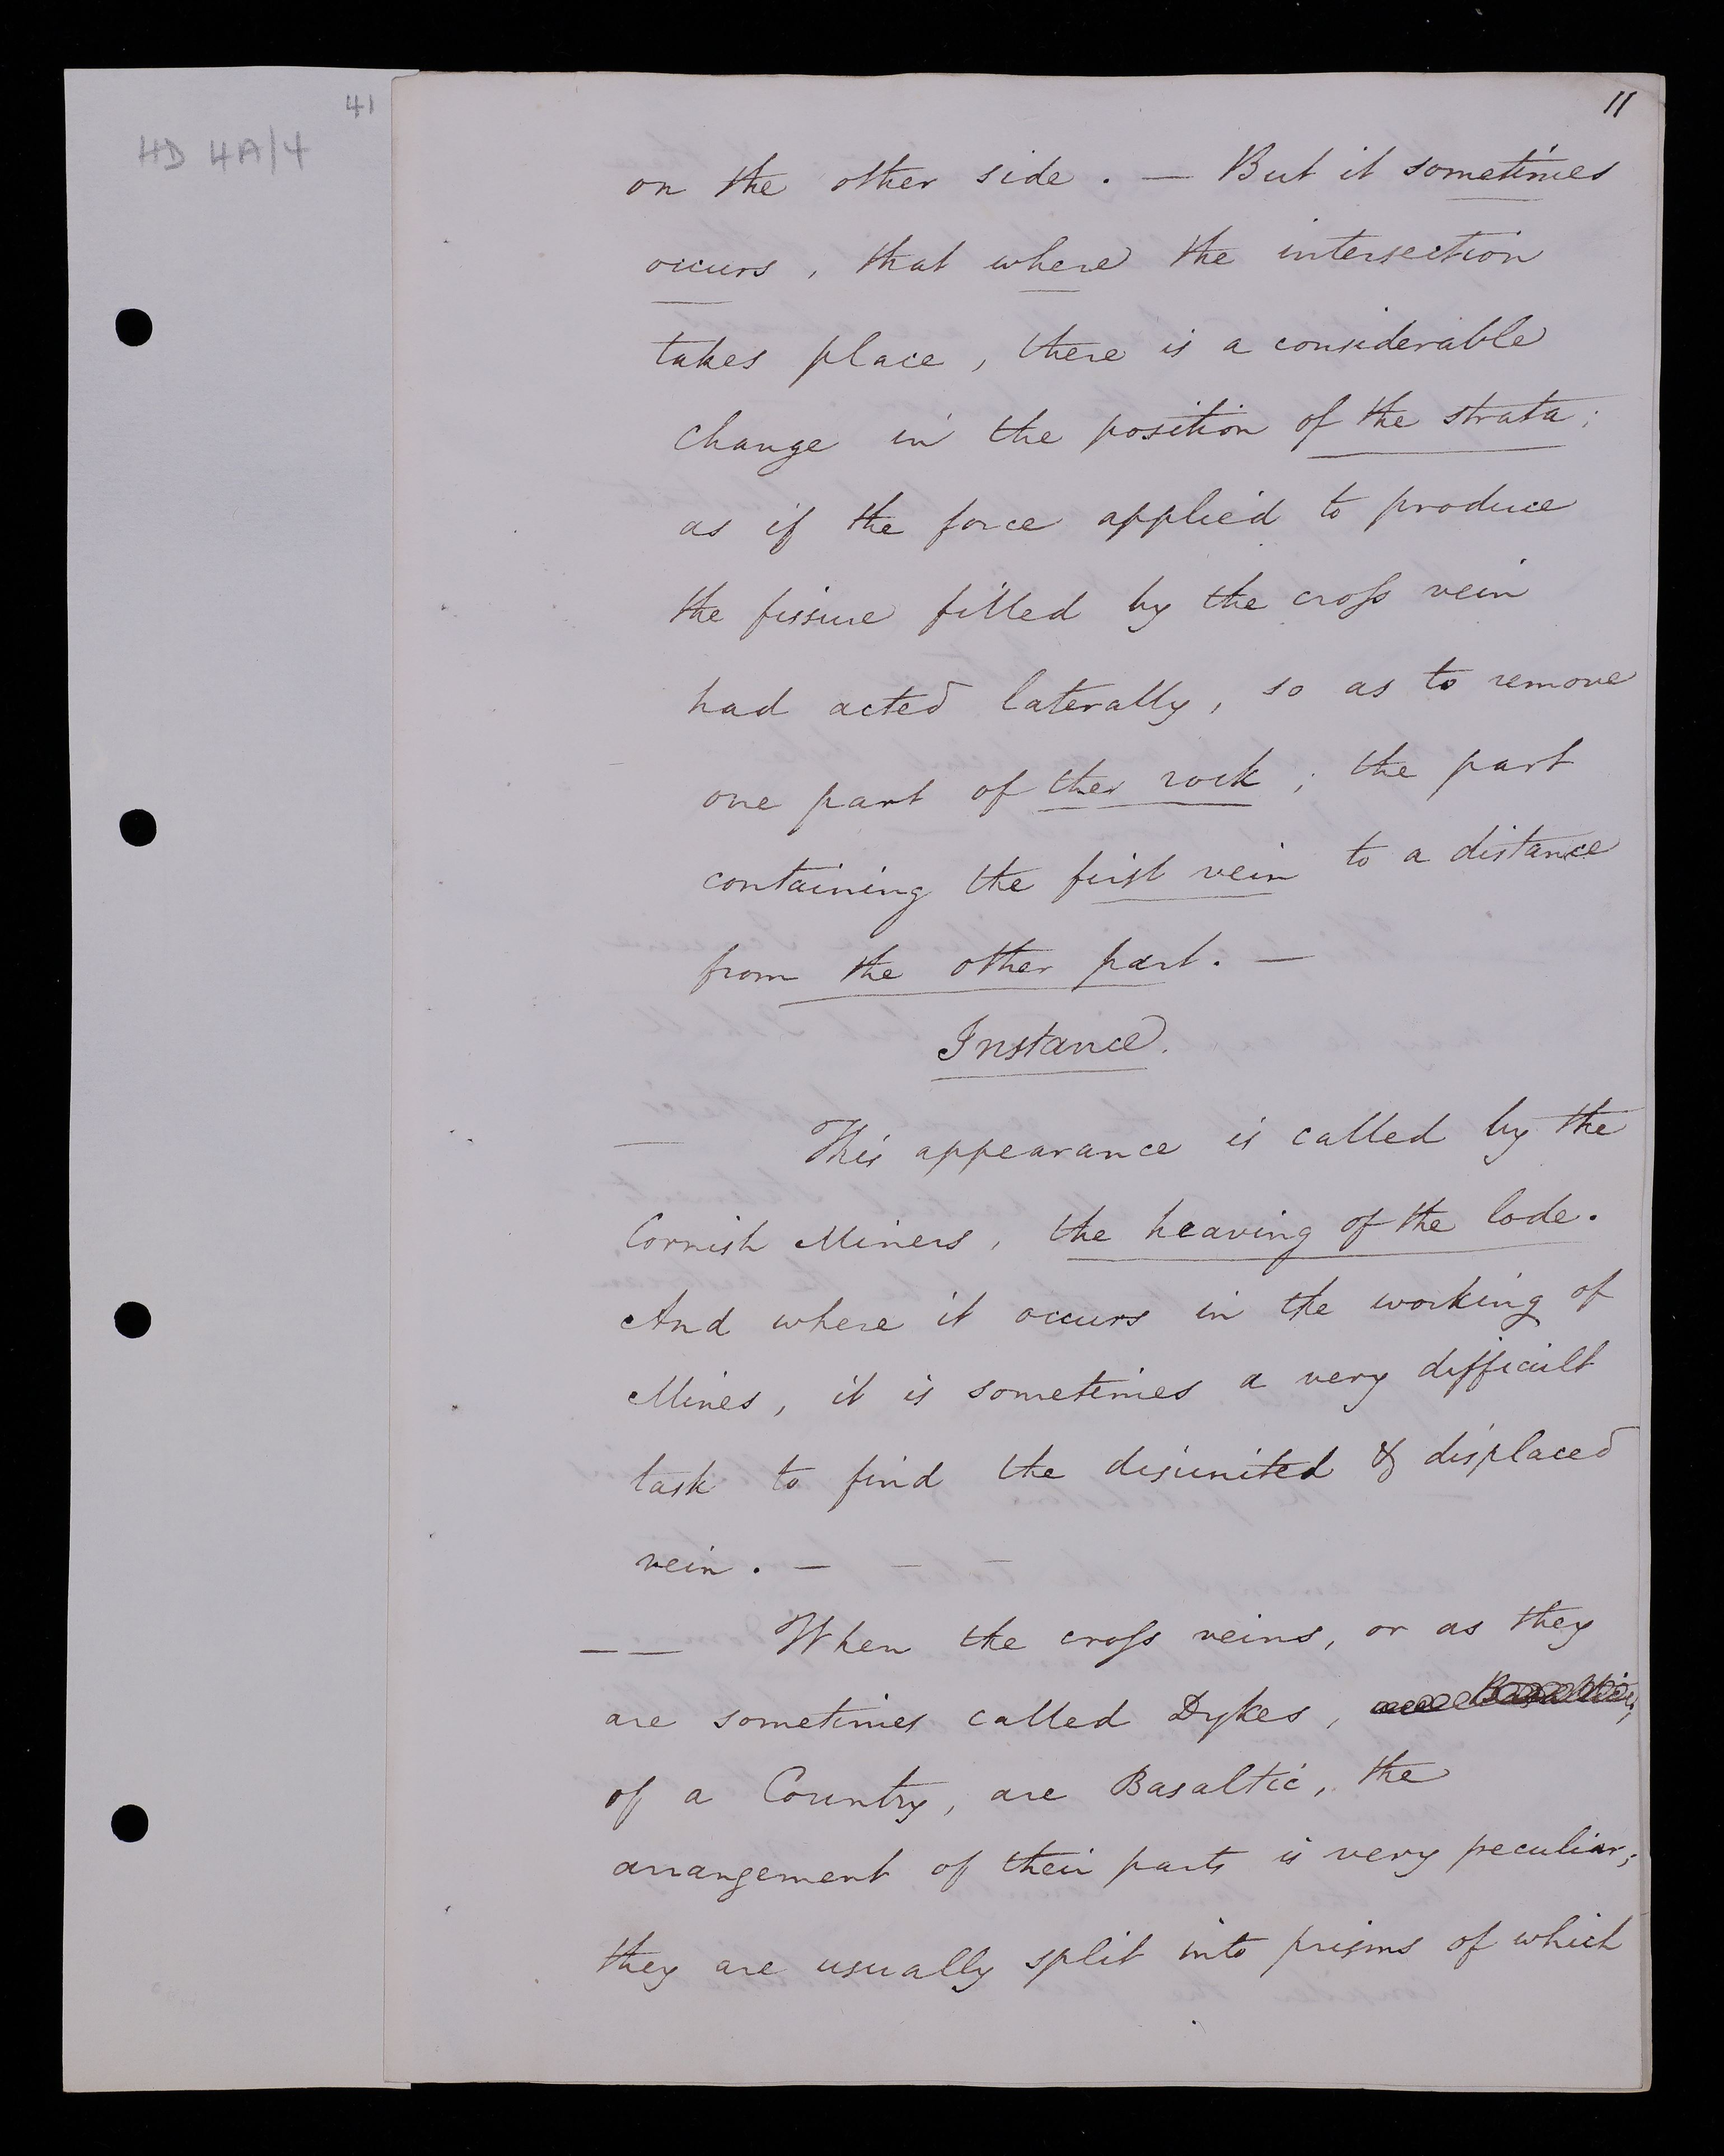 41
HD 4A/4
11
on the other side. — But it sometimes
occurs, that where the intersection
takes place, there is a considerable
change in the position of the strata;
as if the force applied to produce
the fissure filled by the cross vein
had acted laterally, so as to remove
one part of the rock; the part
containing the first vein to a distance
from the other part. —
Instance.
— This appearance is called by the
Cornish Miners, the heaving of the lode.
And where it occurs in the working of
Mines, it is sometimes a very difficult
task to find the disunited & displaced
vein. — — —
— — When the cross veins, or as they
are sometimes called Dykes, are Basaltic,
of a Country, are Basaltic, the
arrangement of their parts is very peculiar;
they are usually split into prisms of which